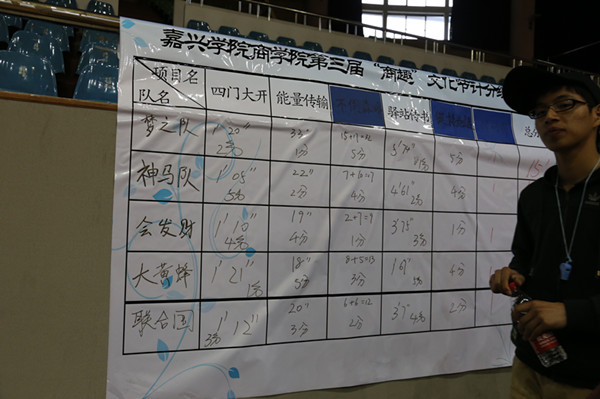 嘉兴学院商学院第三届“商趣”文化节计分
项目名 四门大开 能量传输 驿站传书 总分
队名
梦之队 1'20" 2分 33" 1分 5分 5分 15
神马队 1'05" 5分 22" 2分 7+10=17 4分 4'61" 2分 4分
会发财 1'10" 4分 19" 4分 2+7=9 1分 3'75" 3分 1分
大黄蜂 1'21" 1分 18" 5分 8+5=13 3分 4分
联合国 1'12" 3分 20" 3分 6+6=12 2分 3'7" 4分 2分